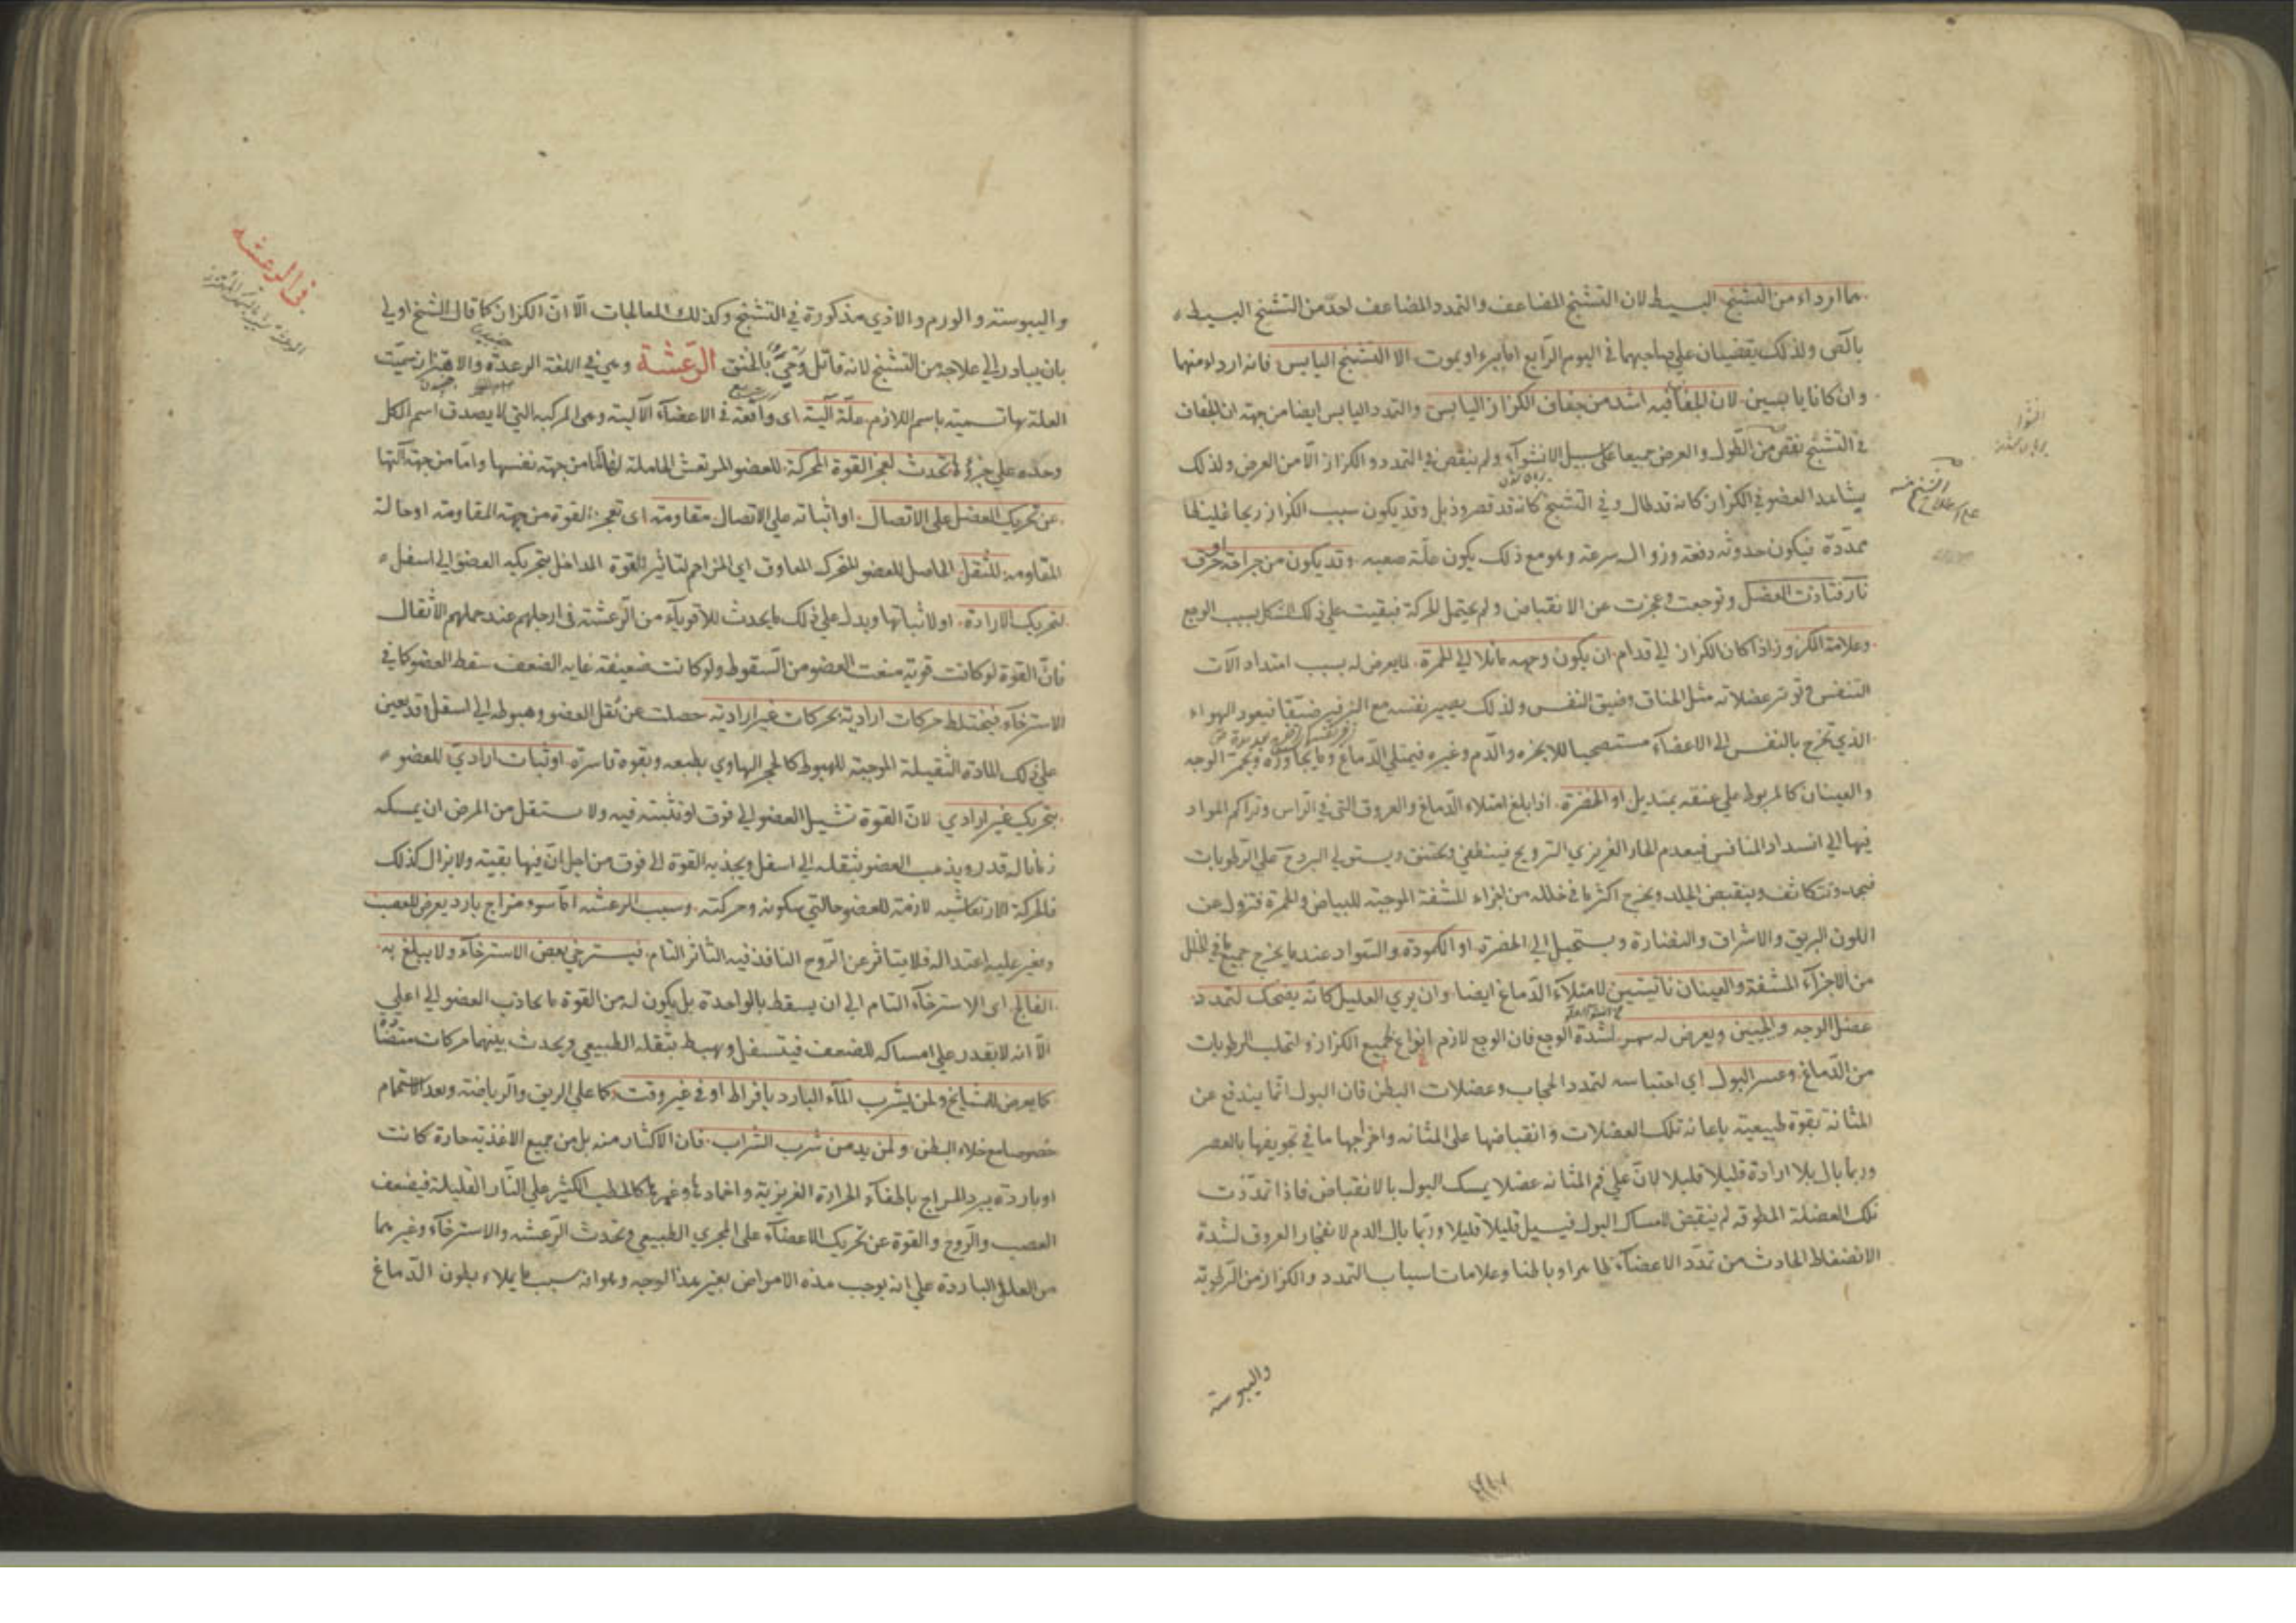 هما اردا من التشنج البسيط لان التشنج المضاعف والتمدد المضاعف احد من التشنج البسيط
بالقى ولذلك يقضيان على صاحبهما فى اليوم الرابع اما يبرء او يموت الا التشنج اليابس فانه اردا منهما
وان كانا يابسين لان الجفاف فيه اشد من جفاف الكزاز اليابس والتمدد اليابس ايضا من جهة ان الجفاف
فى التشنج نقص من الطول والعرض جميعا على سبيل الانشواء ولم ينقص فى التمدد والكزاز الا من العرض ولذلك
يشاهد العضو فى الكزاز كانه قد طال وفى التشنج كانه قد قصر وذبل وقد يكون سبب الكزاز ريحا غليظا
ممددة فيكون حدوثه دفعة وزواله سرعة وهو مع ذلك يكون علة صعبه وقد يكون من جراحة او حرق
نار فتاذت العضل وتوجعت وعجزت عن الانقباض ولم يحتمل الحركة فبقيت على ذلك الشكل بسبب الوجع
وعلامة الكزوز اذا كان الكزاز الى قدام ان يكون وجهه مائلا الى الحمرة لما يعرض له بسبب امتداد الات
التنفس وتوتر عضلاته مثل الخناق وضيق النفس ولذلك يصير نفسه مع الزفير ضيقا فيعود الهواء
الذي يخرج بالنفس الى الاعضاء مستصحبا للابخره والدم وغيره فيمتلى الدماغ وما يجاوره ويحمر الوجه
والعينان كالمربوط على عنقه بمنديل او الخضرة اذا بلغ امتلاء الدماغ والعروق التى فى الراس وتراكم المواد
فيها الى انسداد المنافس فيعدم الحار الغريزي الترويح فينطفى ويختنق ويستولى البرد ح على الرطوبات
فيجمد وتتكاثف وينقبض الجلد ويخرج اكثر ما فى خلله من اجزاء المشفة الموجبة للبياض والحمرة فتزول عن
اللون البريق والاشراق والنضارة ويستحيل الى الخضرة او الكمودة والسواد عند ما يخرج جميع ما فى الخلل
من الاجزاء المشفة والعينان ناتيتين لامتلاء الدماغ ايضا وان يرى العليل كانه يضحك لتمدد
عضل الوجه والجبين ويعرض له سهر لشدة الوجع فان الوجع لازم انواع لجميع الكزاز ولتحلب الرطوبات
من الدماغ وعسر البول اي احتباسه لتمدد الحجاب وعضلات البطن فان البول انما يندفع عن
المثانة بقوة طبيعية باعانة تلك العضلات وانقباضها على المثانه واخراجها ما فى تجويفها بالعصر
وربما بال بلا ارادة قليلا قليلا لان على فم المثانه عضلا يمسك البول بالانقباض فاذا تمددت
تلك العضلة المطوقه لم ينقبض لامساك البول فيسيل قليلا قليلا وربما بال الدم لانفجار العروق لشدة
الانضغاط الحادث من تمدد الاعضاء ظاهرا وباطنا وعلامات اسباب التمدد والكزاز من الرطوبة
واليبوسة
واليبوسة والورم والاذي مذكورة فى التشنج وكذلك المعالجات الا ان الكزاز كما قال الشيخ اولى
بان يبادر الى علاجه من التشنج لانه قاتل وحي بالخنق الرعشة وهى فى اللغة الرعدة والاهتزاز سميت
العلة بها تسمية باسم اللازم علة الية اى واقعة فى الاعضاء الالية وهى المركبه التى لا يصدق اسم الكل
وحده على جزؤه تحدث لعجز القوة المحركة للعضو المرتعش الحاملة لها اما من جهة نفسها واما من جهة آلتها
عن تحريك العضل على الاتصال او اثباته على الاتصال مقاومة اى تعجز القوة من جهة المقاومة او حالة
المقاومة للثقل الحاصل للعضو المتحرك المعاوق اي المزاحم لتاثير القوة المداخل بتحريكه العضو الى اسفل
لتحريك الارادة او لاثباتها ويدل على ذلك ما يحدث للاقوياء من الرعشة فى ارجلهم عند حملهم الاثقال
فان القوة لو كانت قوية منعت العضو من السقوط ولو كانت ضعيفة غايه الضعف سقط العضو كما فى
الاسترخاء فيختلط حركات ارادية بحركات غير ارادية حصلت عن ثقل العضو وهبوطه الى اسفل وقد يعين
على ذلك المادة الثقيلة الموجبة للهبوط كالحجر الهاوي بطبعه وبقوة قاسرة او ثبات ارادي للعضو
بتحريك غير ارادي لان القوة تشيل العضو الى فوق او تثبته فيه ولا يستقل من المرض ان يمسكه
زمانا له قدر ويذهب العضو بثقله الى اسفل ويجذبه القوة الى فوق من اجل ان فيها بقية ولا يزال كذلك
فالحركة الارتعاشيه لازمة للعضو حالتى سكونه وحركته وسبب الرعشه اما سوء مزاج بارد يعرض للعصب
ويغير عليه اعتداله فلا يتاثر عن الروح النافذ فيه التاثر التام فيسترخى بعض الاسترخاء ولا يبلغ به
الفالج اى الاسترخاء التام الى ان يسقط بالواحدة بل يكون له من القوة ما يجاذب العضو الى اعلى
الا انه لا يقدر على امساكه للضعف فيتسفل ويهبط بثقله الطبيعى ويحدث بينهما حركات متضادة
كما يعرض للمشايخ ولمن يشرب الماء البارد بافراط او فى غير وقت كما على الريق والرياضة وبعد الاستحمام
خصوصا مع خلاء البطن ولمن يدمن شرب الشراب فان الاكثار منه بل من جميع الاغذية حارة كانت
او باردة يبرد المزاج باطفاء الحرارة الغريزية واخمادها وغمرها كالحطب الكثير على النار القليلة فيضعف
العصب والروح والقوة عن تحريك الاعضاء على المجرى الطبيعى وتحدث الرعشه والاسترخاء وغيرهما
من العلل الباردة على انه يوجب هذه الامراض بغير هذا الوجه وهو انه بسبب ما يملاء بطون الدماغ
فى الرعشه